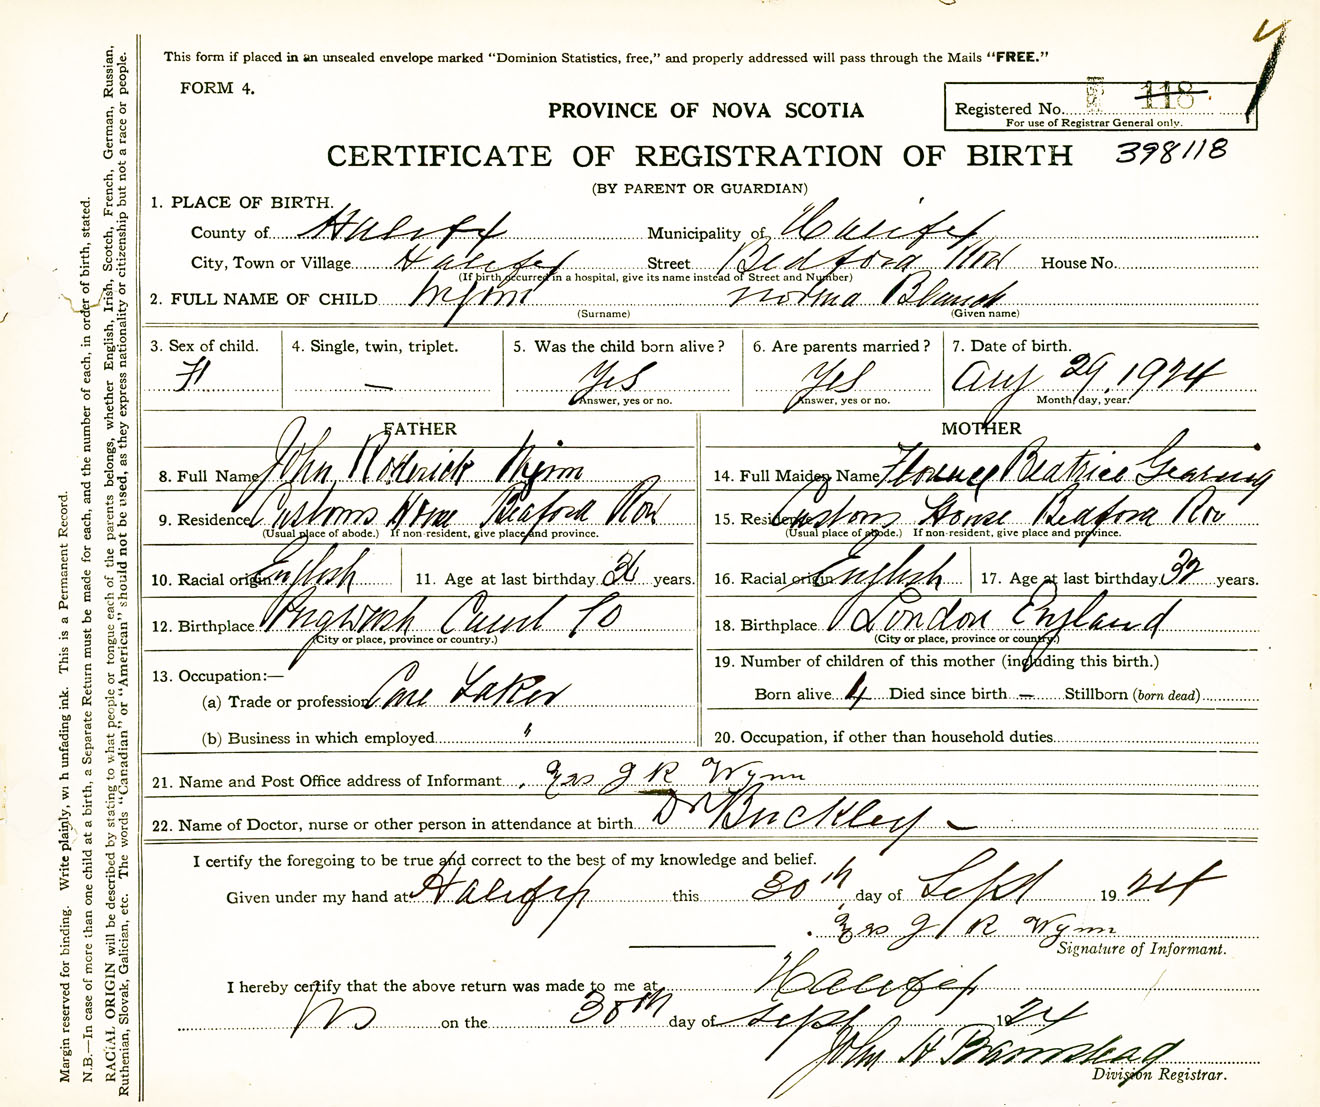 This form if placed in an unsealed envelope marked "Dominion Statistics, free," and properly addressed will pass through the Mails "FREE."
FORM 4.
Registered No. 118
For use of Registrar General only.
PROVINCE OF NOVA SCOTIA
CERTIFICATE OF REGISTRATION OF BIRTH 398118
(BY PARENT OR GUARDIAN)
1. PLACE OF BIRTH.
County of Halifax Municipality of Halifax
City, Town or Village Halifax Street Bedford Row House No.
(If birth occurred in a hospital, give its name instead of Street and Number)
2. FULL NAME OF CHILD Wynn Norma Blanch
(Surname) (Given name)
3. Sex of child. 4. Single, twin, triplet. 5. Was the child born alive? 6. Are parents married? 7. Date of birth.
F — Yes Yes Aug 29, 1924
Answer, yes or no. Answer, yes or no. Month, day, year.
FATHER MOTHER
8. Full Name John Roderick Wynn 14. Full Maiden Name Florence Beatrice Gearing
9. Residence Customs House Bedford Row 15. Residence Customs House Bedford Row
(Usual place of abode.) If non-resident, give place and province. (Usual place of abode.) If non-resident, give place and province.
10. Racial origin English 11. Age at last birthday 36 years. 16. Racial origin English 17. Age at last birthday 32 years.
12. Birthplace Pugwash Co 18. Birthplace London England
(City or place, province or country.) (City or place, province or country.)
13. Occupation:— 19. Number of children of this mother (including this birth.)
(a) Trade or profession Care Taker Born alive 4 Died since birth — Stillborn (born dead)
(b) Business in which employed " 20. Occupation, if other than household duties
21. Name and Post Office address of Informant Mrs J R Wynn
22. Name of Doctor, nurse or other person in attendance at birth Dr Buckley —
I certify the foregoing to be true and correct to the best of my knowledge and belief.
Given under my hand at Halifax this 30th day of Sept 1924
Mrs J R Wynn
Signature of Informant.
I hereby certify that the above return was made to me at Halifax
NS on the 30th day of Sept 1924
John H Barnstead
Division Registrar.
Margin reserved for binding. Write plainly, with unfading ink. This is a Permanent Record.
N.B.—In case of more than one child at a birth, a Separate Return must be made for each, and the number of each, in order of birth, stated.
RACIAL ORIGIN will be described by stating to what people or tongue each of the parents belongs, whether English, Irish, Scotch, French, German, Russian,
Ruthenian, Slovak, Galician, etc. The words "Canadian" or "American" should not be used, as they express nationality or citizenship but not a race or people.